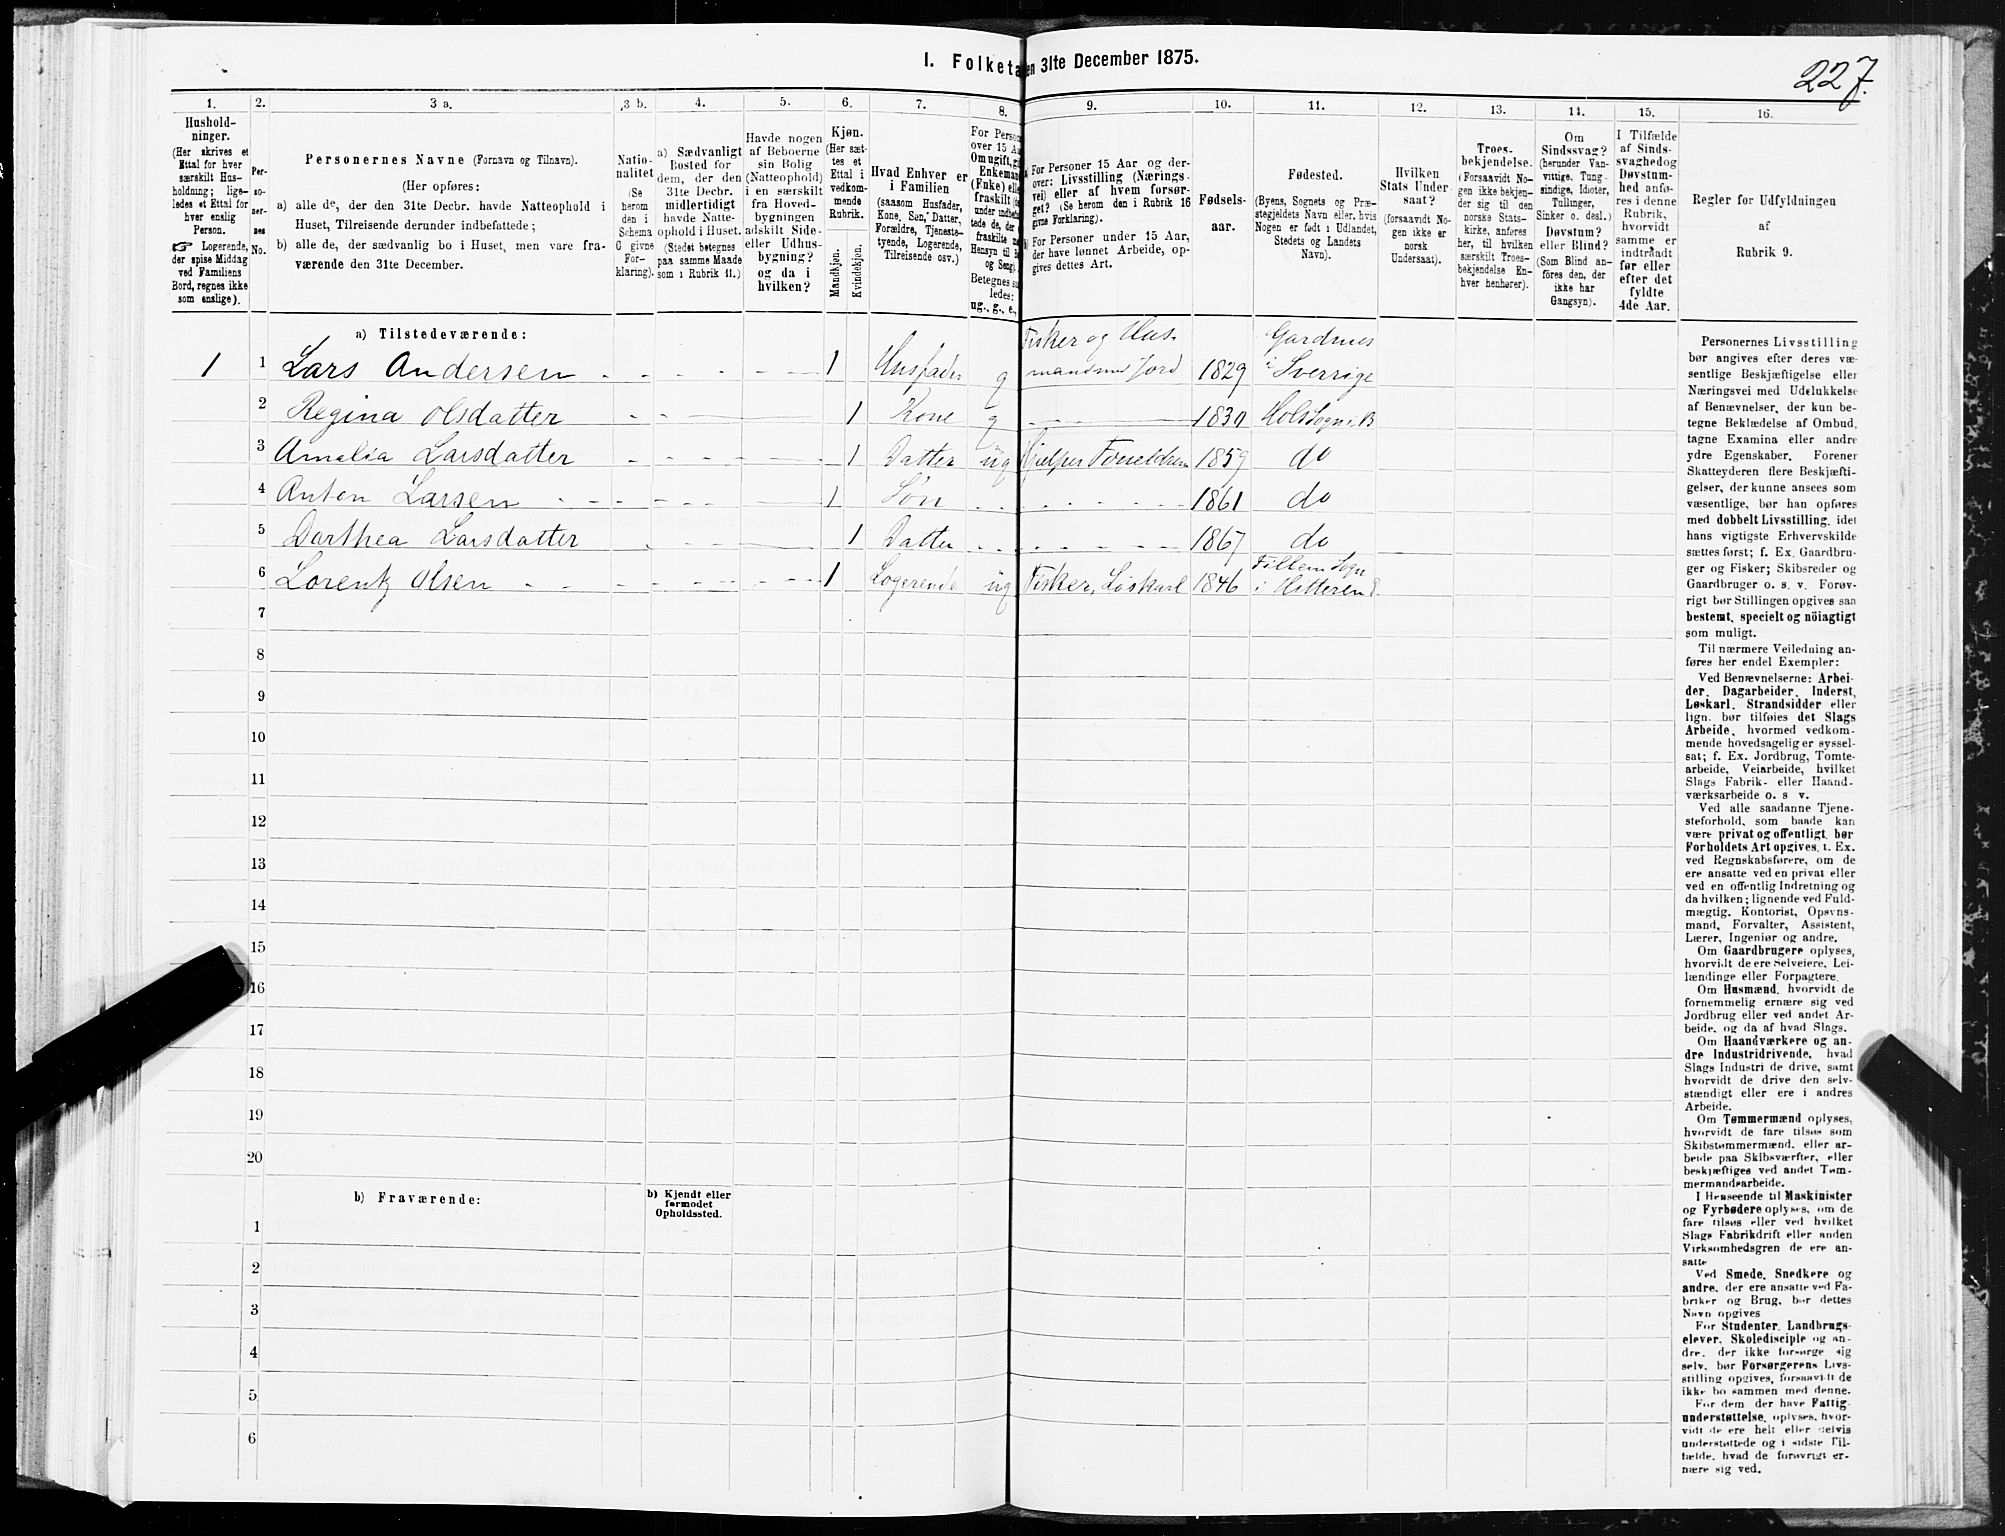 I. Folketæ
en 31te December 1875.
227.
1.
Hushold-
ninger.
(Her skrives et
Ettal for hver
særskilt Hus-
holdning; lige-
ledes et Ettal for
hver enslig
Person.
☞ Logerende,
der spise Middag
ved Familiens
Bord, regnes ikke
som enslige).
2.
Per-
so-
ner-
nes
No.
3 a.
Personernes Navne (Fornavn og Tilnavn).
(Her opføres:
a) alle de, der den 31te Decbr. havde Natteophold i
Huset, Tilreisende derunder indbefattede;
b) alle de, der sædvanlig bo i Huset, men vare fra-
værende den 31te December.
3 b.
Natio-
nalitet
(Se
herom
den i
Schema
C givne
For-
klaring).
4.
a) Sædvanligt
Bosted for
dem, der den
31te Decbr.
midlertidigt
havde Natte-
ophold i Huset.
(Stedet betegnes
paa samme Maade
som i Rubrik 11.)
5.
Havde nogen
af Beboerne
sin Bolig
(Natteophold)
i en særskilt
fra Hoved-
bygningen
adskilt Side-
eller Udhus-
bygning?
og da i
hvilken?
6.
Kjøn.
(Her sæt-
tes et
Ettal i
vedkom-
mende
Rubrik.
Mandkjøn.
Kvindekjøn.
7.
Hvad Enhver er
i Familien
(saasom Husfader,
Kone, Søn, Datter,
Forældre, Tjeneste-
tyende, Logerende,
Tilreisende osv.)
8.
For Person
over 15 Aa
Om ugift, gi
Enkeman
(Enke) elle
fraskilt
under indbef
tede de, der
fraskilte
Hensyn til B
og Seng).
Betegnes sa
ledes:
ug., g., e.,
9.
a) For Personer 15 Aar og der-
over: Livsstilling (Nærings-
vei) eller af hvem forsør-
get? (Se herom den i Rubrik 16
givne Forklaring).
b) For Personer under 15 Aar,
der have lønnet Arbeide, op-
gives dettes Art.
10.
Fødsels-
aar.
11.
Fødested.
(Byens, Sognets og Præ-
stegjeldets Navn eller, hvis
Nogen er født i Udlandet,
Stedets og Landets
Navn).
12.
Hvilken
Stats Under-
saat?
(forsaavidt No-
gen ikke er
norsk
Undersaat).
13.
Troes-
bekjendelse.
(Forsaavidt No-
gen ikke bekjen-
der sig til den
norske Stats-
kirke, anføres
her, til hvilken
særskilt Troes-
bekjendelse En-
hver henhører).
14.
Om
Sindssvag?
(herunder Van-
vittige, Tung-
sindige, Idioter,
Tullinger,
Sinker o. desl.)
Døvstum?
eller Blind?
(Som Blind an-
føres den, der
ikke har
Gangsyn).
15.
I Tilfælde
af Sinds-
svaghed og
Døvstum-
hed anfø-
res i denne
Rubrik,
hvorvidt
samme er
indtraadt
før eller
efter det
fyldte
4de Aar.
16.
Regler for Udfyldningen
af
Rubrik 9.
a) Tilstedeværende:
1 1 Lars Andersen 1 Husfader g Fisker og Hus-
mand med Jord 1829 i Sverrige
2 Regina Olsdatter 1 Kone g 1830 Hols Sogn i B
3 Amalia Larsdatter 1 Datter ug Hjelper Forældrene 1859 do
4 Anton Larsen 1 Søn 1861 do
5 Darthea Larsdatter 1 Datter 1867 do
6 Lorentz Olsen 1 Logerende ug Fisker, Løskarl 1846 Fillem Sogn
i Hitteren P.
7
8
9
10
11
12
13
14
15
16
17
18
19
20
b) Fraværende:
b) Kjendt eller
formodet
Opholdssted.
1
2
3
4
5
6
Personernes Livsstilling
bør angives efter deres væ-
sentlige Beskjæftigelse eller
Næringsvei med Udelukkelse
af Benævnelser, der kun be-
tegne Beklædelse af Ombud,
tagne Examina eller andre
ydre Egenskaber. Forener
Skatteyderen flere Beskjæfti-
gelser, der kunne ansees som
væsentlige, bør han opføres
med dobbelt Livsstilling, idet
hans vigtigste Erhvervskilde
sættes først; f. Ex. Gaardbru-
ger og Fisker; Skibsreder og
Gaardbruger o. s. v. Forøv-
rigt bør Stillingen opgives saa
bestemt, specielt og nöiagtigt
som muligt.
Til nærmere Veiledning an-
føres her endel Exempler:
Ved Benævnelserne: Arbei-
der, Dagarbeider, Inderst,
Løskarl, Strandsidder eller
lign. bør tilføies det Slags
Arbeide, hvormed vedkom-
mende hovedsagelig er syssel-
sat; f. Ex. Jordbrug, Tomte-
arbeide, Veiarbeide, hvilket
Slags Fabrik- eller Haand-
værksarbeide o. s v.
Ved alle saadanne Tjene-
steforhold, som baade kan
være privat og offentligt, bør
Forholdets Art opgives, t. Ex.
ved Regnskabsførere, om de
ere ansatte ved en privat eller
ved en offentlig Indretning og
da hvilken; lignende ved Fuld-
mægtig, Kontorist, Opsyns-
mand, Forvalter, Assistent,
Lærer, Ingeniør og andre.
Om Gaardbrugere oplyses,
hvorvidt de ere Selveiere, Lei-
lændinge eller Forpagtere.
Om Husmænd, hvorvidt de
fornemmelig ernære sig ved
Jordbrug eller ved andet Ar-
beide, og da af hvad Slags.
Om Haandværkere og an-
dre Industridrivende, hvad
Slags Industri de drive, samt
hvorvidt de drive den selv-
stændigt eller ere i andres
Arbeide.
Om Tømmermænd oplyses,
hvorvidt de fare tilsøs som
Skibstømmermænd, eller ar-
beide paa Skibsværfter, eller
beskjæftiges ved andet Tøm-
mermandsarbeide.
I Henseende til Maskinister
og Fyrbødere oplyses, om de
fare tilsøs eller ved hvilket
Slags Fabrikdrift eller anden
Virksomhedsgren de ere an-
satte
Ved Smede, Snedkere og
andre, der ere ansatte ved Fa-
briker og Brug, bør dettes
Navn opgives
For Studenter, Landbrugs-
elever, Skoledisciple og an-
dre, der ikke forsørge sig
selv, bør Forsørgerens Livs-
stilling opgives, forsaavidt de
ikke bo sammen med denne.
For dem, der have Fattig-
understøttelse, oplyses, hvor-
vidt de ere helt eller delvis
understøttede og i sidste Til-
fælde, hvad de forøvrigt er-
nære sig ved.